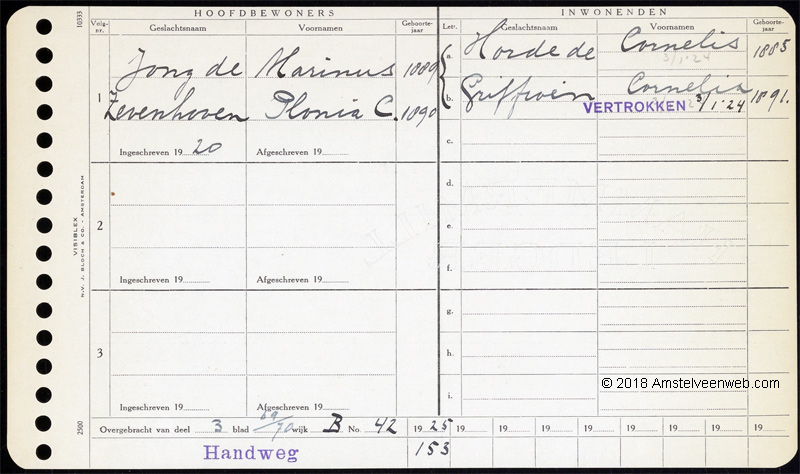 HOOFDBEWONERS
Volg-nr. Geslachtsnaam Voornamen Geboorte-jaar
1 Jong de Marinus 1889
Zevenhoven Plonia C. 1890
Ingeschreven 19 20 Afgeschreven 19
2
Ingeschreven 19 Afgeschreven 19
3
Ingeschreven 19 Afgeschreven 19
INWONENDEN
Lett. Geslachtsnaam Voornamen Geboorte-jaar
a. Horde de Cornelis 1885
3/1'24
b. Griffioen Cornelia 1891.
VERTROKKEN 3/1'24
c.
d.
e.
f.
g.
h.
i.
© 2018 Amstelveenweb.com
Overgebracht van deel 3 blad 69/70 wijk B No. 42 1925 19 19 19 19 19 19 19 19
Handweg 153
10333
VISIBLEX
N.V. J. BLOCH & CO. - AMSTERDAM
2500